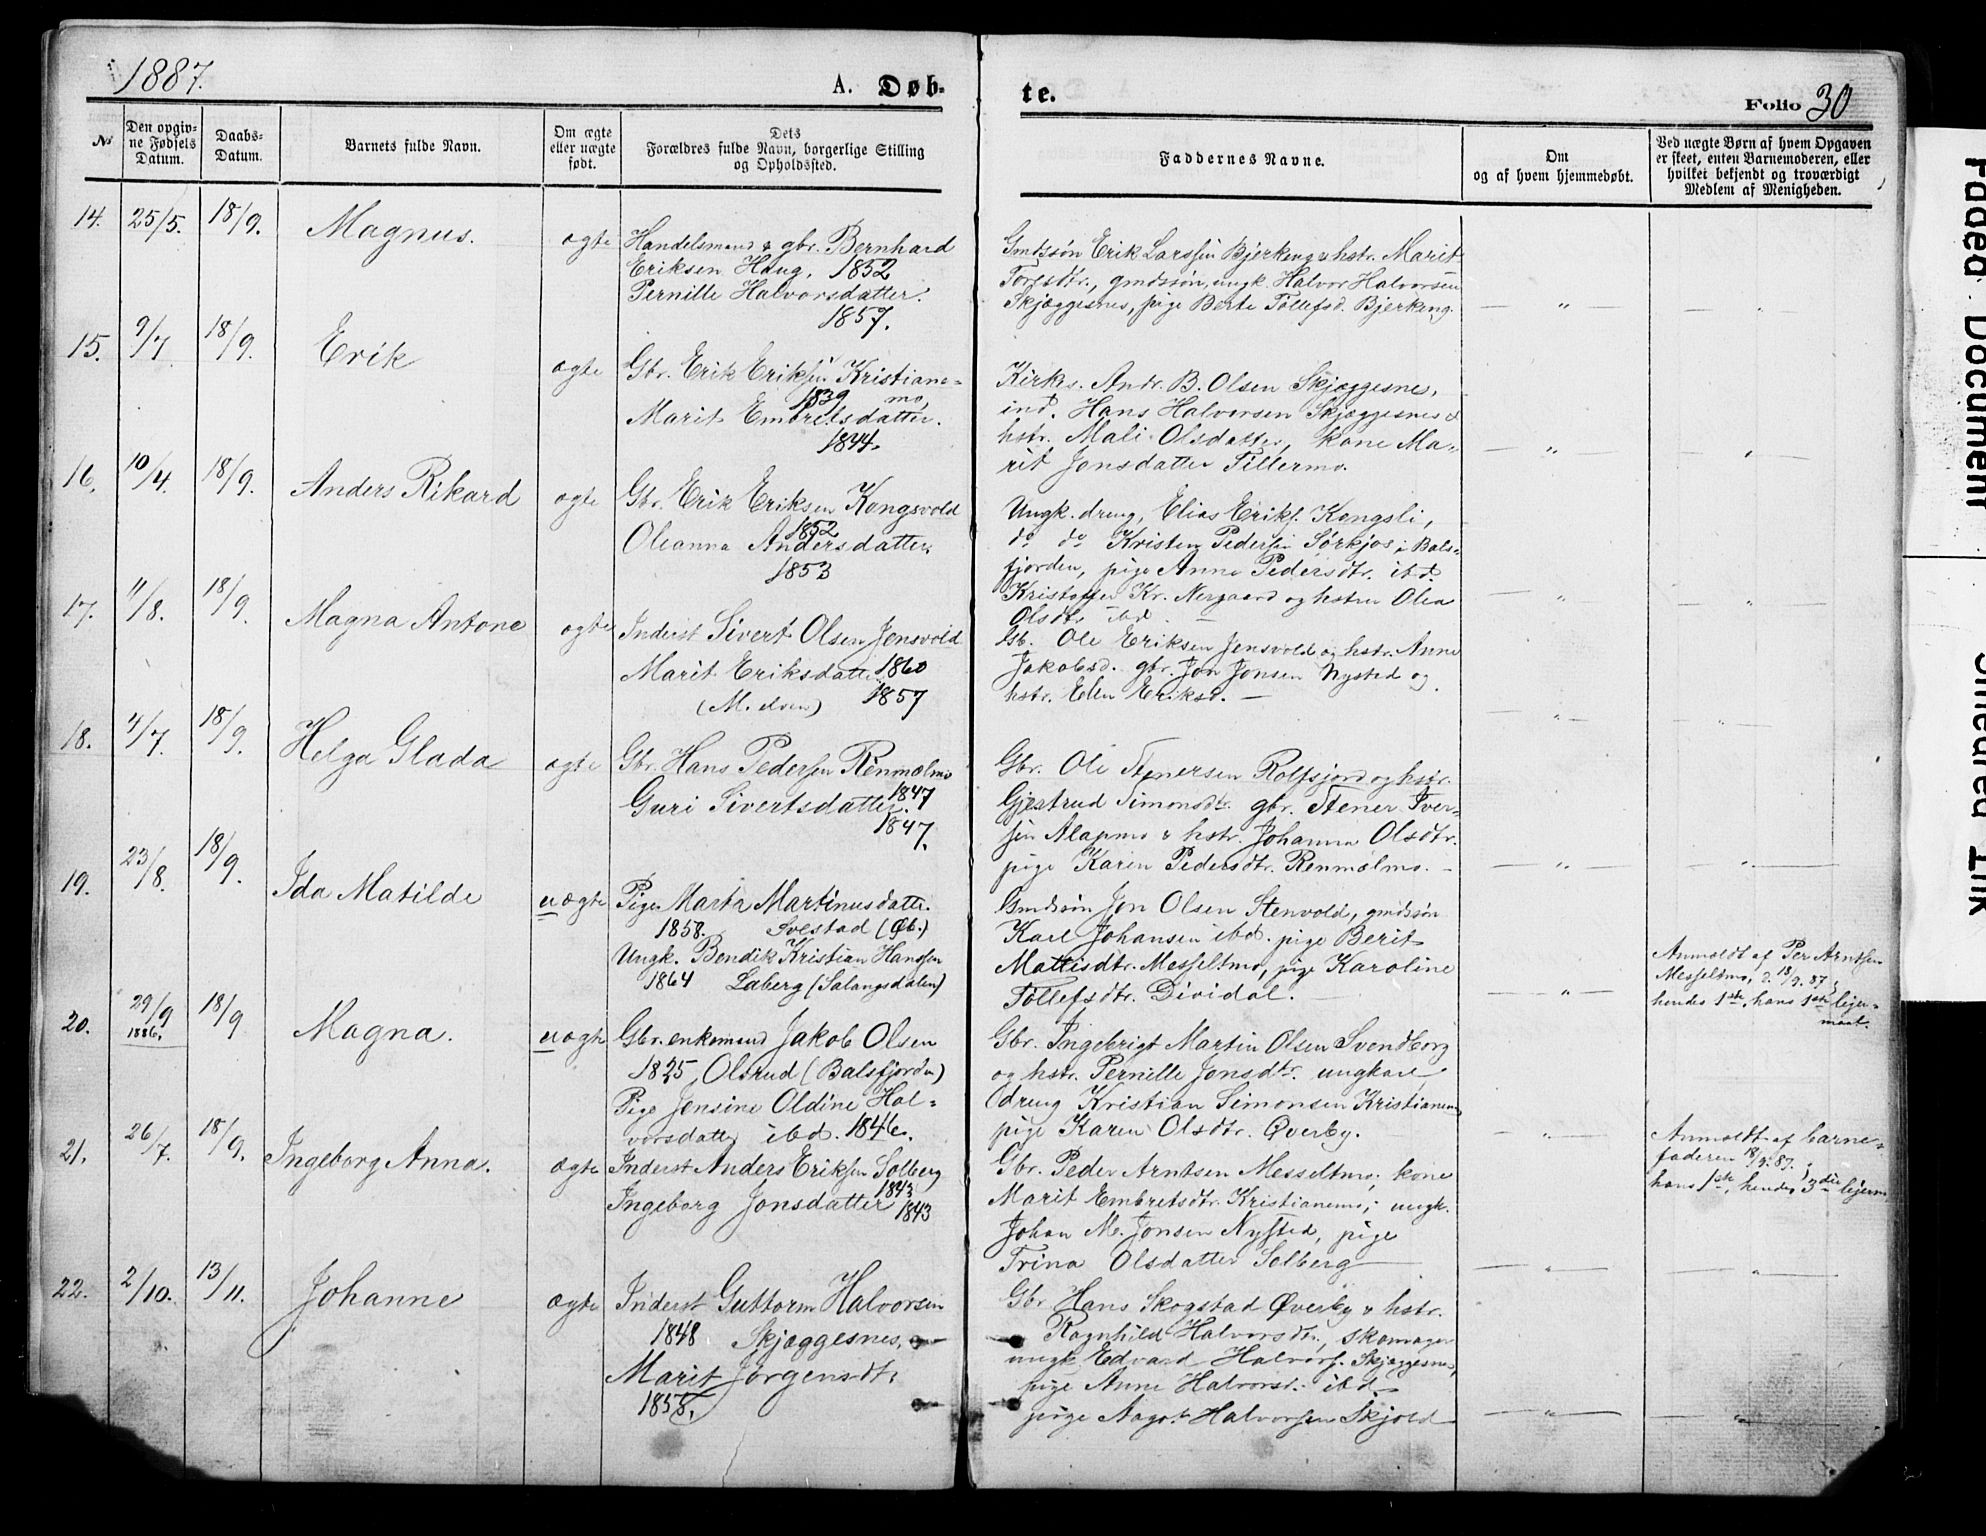 1887.
A. Døb-
te.
Folio 30
№
Den opgiv-
ne Fødsels
Datum.
Daabs-
Datum.
Barnets fulde Navn.
Om ægte
eller uægte
født.
Dets
Forældres fulde Navn, borgerlige Stilling
og Opholdssted.
Faddernes Navne.
Om
og af hvem hjemmedøbt.
Ved uægte Børn af hvem Opgaven
er skeet, enten Barnemoderen, eller
hvilket bekjendt og troværdigt
Medlem af Menigheden.
14. 25/5. 18/9. Magnus. ægte
Handelsmand & gbr. Bernhard
Eriksen Haug. 1852
Pernille Halvorsdatter.
1857.
Gmdssøn Erik Larssen Bjerkeng & hstr. Marit
Tollfsdtr., gmdssøn, ungk. Halvor Halvorsen
Skjæggesnes, pige Berte Tollefsd. Bjerkeng.
— " —
15. 9/7 18/9. Erik ægte
Gbr. Erik Eriksen Kristiane-
1839 mo,
Marit Embretsdatter.
1844.
Kirkes. Andr. B. Olsen Skjæggesnes,
ind. Hans Halvorsen Skjæggesnes &
hstr. Mali Olsdatter, kone Ma-
rit Jonsdatter Tillermo.
— " —
16. 10/4. 18/9. Anders Rikard ægte
Gbr. Erik Eriksen Kongsvold
1852
Oleanna Andersdatter.
1853
Ungk. dreng, Elias Eriks. Kongsli,
do do Kristen Pedersen Sørkjos i Bals-
fjorden, pige Anne Pedersdtr. ibd.
Kristoffer Kr. Nergaard og hstru Olea
Olsdtr ibd. —
— " —
17. 11/8. 18/9. Magna Antone ægte
Inderst Sivert Olsen Jensvold
Marit Eriksdatter 1860
(M. elven) 1857
Gb. Ole Eriksen Jensvold og hstr. Anne
Jakobsd. gbr. Jon Jonsen Nysted og
hstr. Elen Eriksd. —
— " —
18. 4/7. 18/9. Helga Glada ægte
Gbr. Hans Pedersen Renmælmo
1847
Guri Sivertsdatter.
1847.
Gbr. Ole Stenersen Rolfsjord og hstr.
Gjertrud Simonsdtr. gbr. Stener Iver-
sen Alapmo & hstr. Johanna Olsdtr.
pige Karen Pedersdtr. Renmælmo. —
— " —
19. 23/8. 18/9. Ida Matilde uægte
Pige Marta Martinusdatter
1858. Svestad (Øb.)
Ungk. Bendik Kristian Hanssen
1864 Laberg (Salangsdalen)
Gmdssøn Jon Olsen Stenvold, gmdssøn
Karl Johansen ibd. pige Berit
Mattisdtr. Messeltmo, pige Karoline
Tollefsdtr. Dividal.
— " —
Anmeldt af Per Arntsen
Messeltmo, d. 18/9. 87;
hendes 1ste, hans 1ste lejer-
maal.
20. 29/9 1886. 18/9 Magna. uægte
Gbr. enkemand Jakob Olsen
1825, Olsrud (Balsfjorden)
Pige Jensine Oldine Hal-
vorsdatter ibd. 1846.
Gbr. Ingebrigt Martin Olsen Svendborg
og hstr. Pernille Jonsdtr. ungkarl
dreng Kristian Simonsen Kristianemo,
pige Karen Olsdtr. Øverby.
— " —
Anmeldt af barne-
faderen 18/9. 87.;
hans 1ste, hendes 3die lejerm
21. 26/7. 18/9. Ingeborg Anna. ægte
Inderst Anders Eriksen Solberg
1843
Ingeborg Jonsdatter 1843
Gbr. Peder Arntsen Messeltmo; kone
Marit Embretsdtr. Kristianemo; ungk.
Johan M. Jonsen Nysted, pige
Trina Olsdatter Solberg
— " —
22. 2/10. 13/11. Johanne ægte
Inderst Guttorm Halvorsen
1848 Skjæggesnes,
Marit Jørgensdtr
1855.
Gbr Hans Skogstad Øverby & hstr.
Ragnhild Halvorsdtr., skomager
ungk Edvard Halvors. Skjæggesnes,
pige Anne Halvorsd. ibd
pige Aagot Halvorsen Skjold
— " —
Faded Document
Smeared Ink